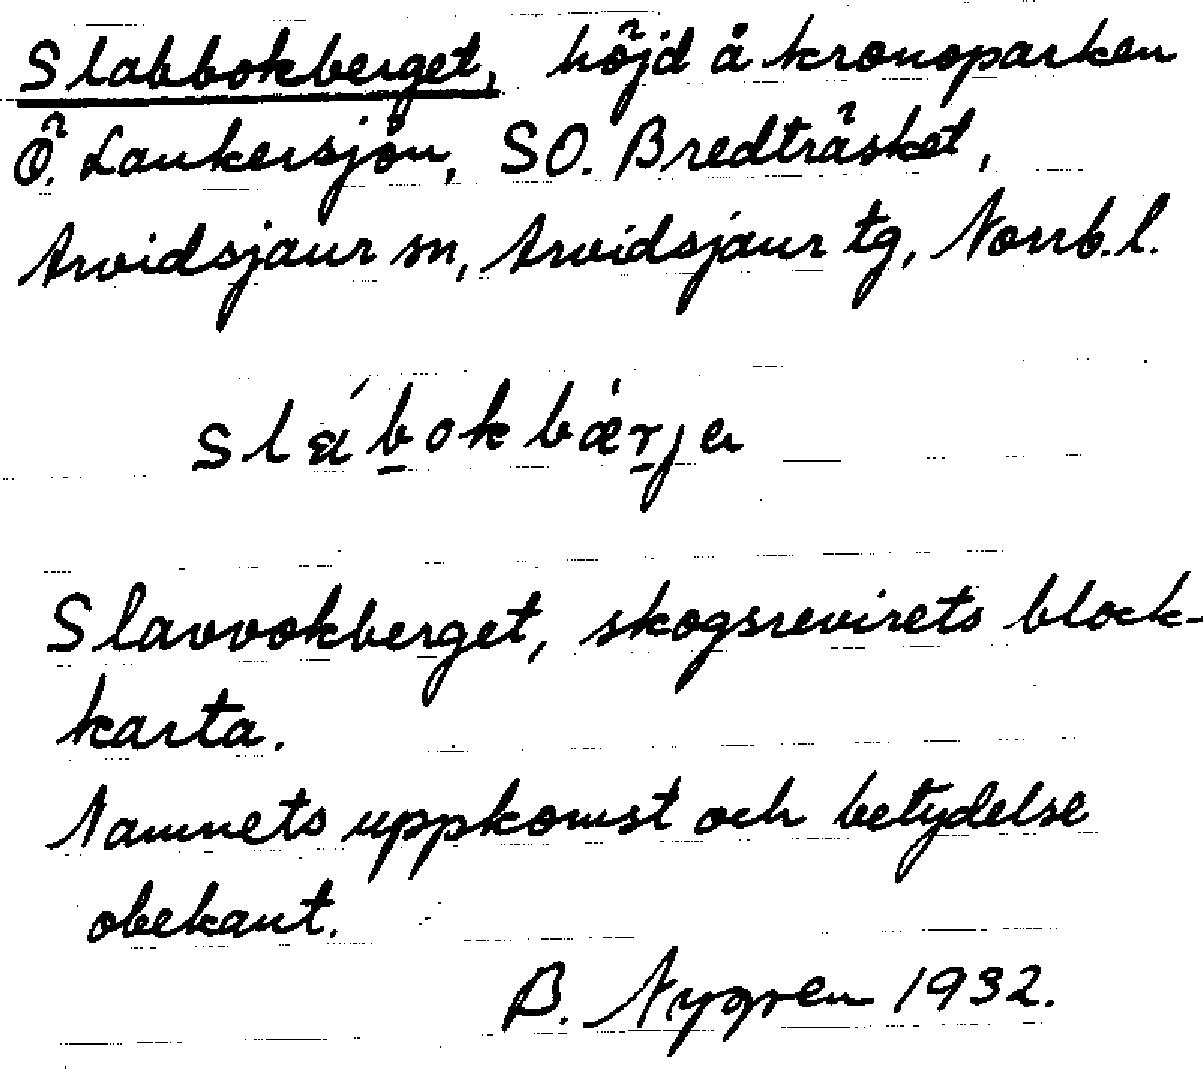 Slabbokberget, höjd å kronoparken
Ö. Lankersjön, SO. Bredträsket,
Arvidsjaur sn, Arvidsjaur tg, Norrb. l.
slábokbærja
Slavvokberget, skogsrevirets block-
karta.
Namnets uppkomst och betydelse
obekant.
B. Nygren 1932.